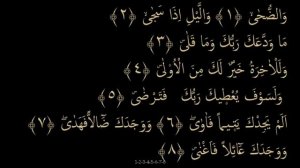 وَالضُّحَىٰ ﴿١﴾ وَالَّيْلِ إِذَا سَجَىٰ ﴿٢﴾
مَا وَدَّعَكَ رَبُّكَ وَمَا قَلَىٰ ﴿٣﴾
وَلَلْآخِرَةُ خَيْرٌ لَكَ مِنَ الْأُولَىٰ ﴿٤﴾
وَلَسَوْفَ يُعْطِيكَ رَبُّكَ فَتَرْضَىٰ ﴿٥﴾
أَلَمْ يَجِدْكَ يَتِيمًا فَآوَىٰ ﴿٦﴾ وَوَجَدَكَ ضَالًّا فَهَدَىٰ ﴿٧﴾
وَوَجَدَكَ عَائِلًا فَأَغْنَىٰ ﴿٨﴾
1-2-3-4-5-6-7-8